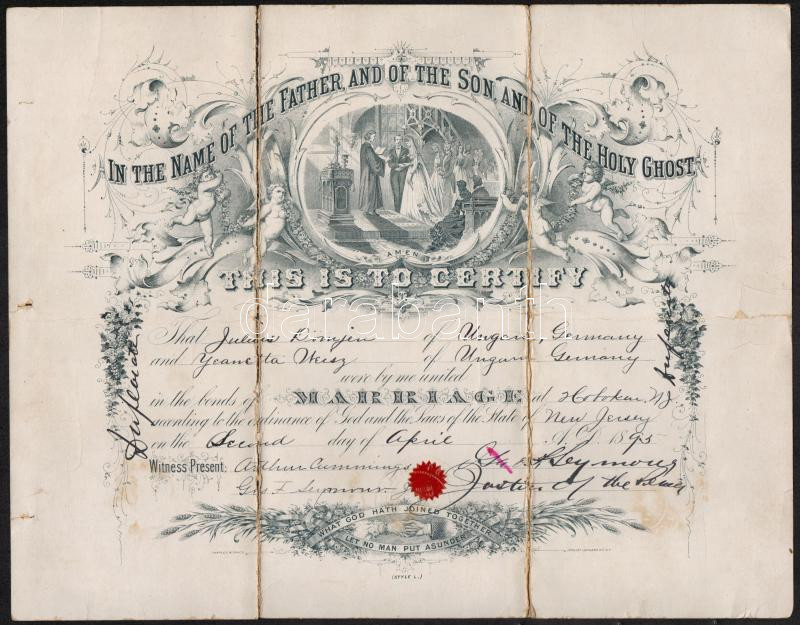 IN THE NAME OF THE FATHER, AND OF THE SON, AND OF THE HOLY GHOST.
AMEN
THIS IS TO CERTIFY
darabanth
That Julius of Ungarn, Germany
and Yeanetta Weisz of Ungarn Germany
were by me united
in the bonds of MARRIAGE at Hoboken, NJ.
according to the ordinance of God and the Laws of the State of New Jersey
on the Second day of April A.D. 1895
Witness Present: Arthur Cummings Seymour
Geo F Seymour Jr Justice of the Peace
Duplicate
Duplicate
WHAT GOD HATH JOINED TOGETHER
LET NO MAN PUT ASUNDER
(STYLE L.)